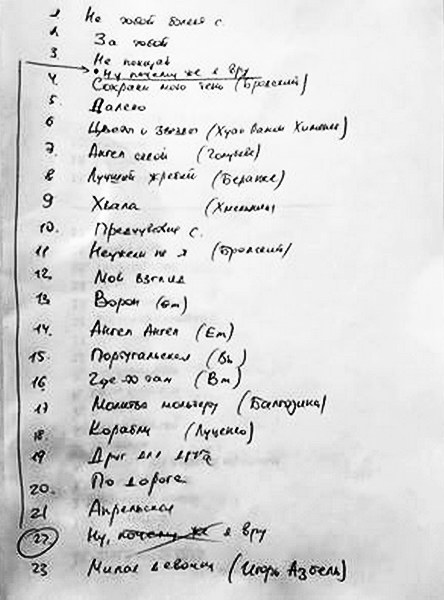 1 Не тобой болен с.
2. За тобой
3 Не покидай
• Ну почему же я вру
4. Сохрани мою тень (Бродский)
5. Далеко
6 Цветы и звезды (Хуан Рамон Хименес)
7. Ангел слепой (Голубев)
8 Лучший жребий (Беранже)
9 Хвала (Хмельник)
10. Предчувствие с.
11 Неужели не я (Бродский)
12. Мой взгляд
13 Ворон (Em)
14. Ангел Ангел (Em)
15. Португальская (Hm)
16 Где-то там (Bm)
17 Молитва мольберту (Балтазина)
18. Корабли (Луценко)
19 Друг для друга
20. По дороге
21 Апрельская
22 Ну, почему же я вру
23 Милая девочка (Игорь Азбель)